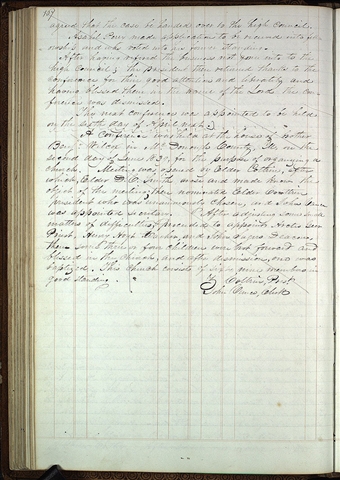 107
agreed that the case be handed over to the high Council.
made application to be received into fel-
lowship and was voted into
After having referred the business not gone into to the
high Council; the President then returned thanks to the
conference for their good attention and liberality, and
having blessed them in the name of the Lords the con-
ference was dismissed.
The next conference was appointed to be held
on the sixth day of April next.
A conference was held at the house of brother
Benj. Wilcox in Mc Donough County, Ill. on the
second day of June 43, for the purpose of organizing a
church. Meeting was opened by Elder Collins, after
which Elder D. C. Smith arose and made known the
object of the meeting; then nominated Elder
president who was unanimously chosen, and John
was appointed secretary. After adjusting some small
matters of difficulties proceeded to appoint
Priest, Henry and John Deacons,
then some thirteen children were brot forward and
blessed in the church, and after dismission, one was
baptized. This church consists of members in
good standing.
Collins, Prest
John Clerk